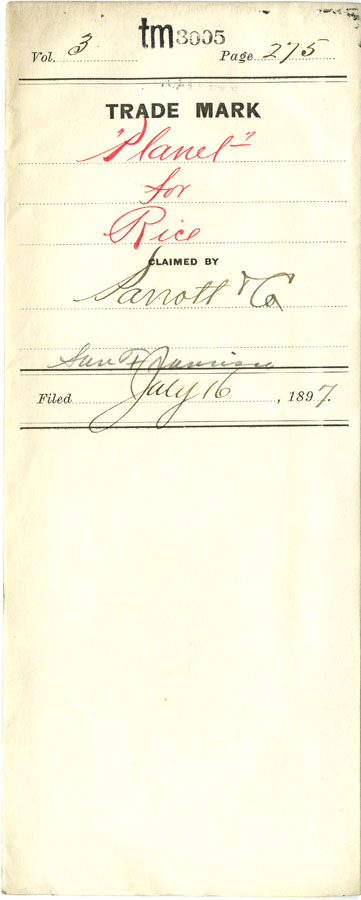 Vol. 3 tm 3005 Page 275
TRADE MARK
"Planet"
for
Rice
CLAIMED BY
Parrott & Co
San Francisco
Filed July 16, 1897.